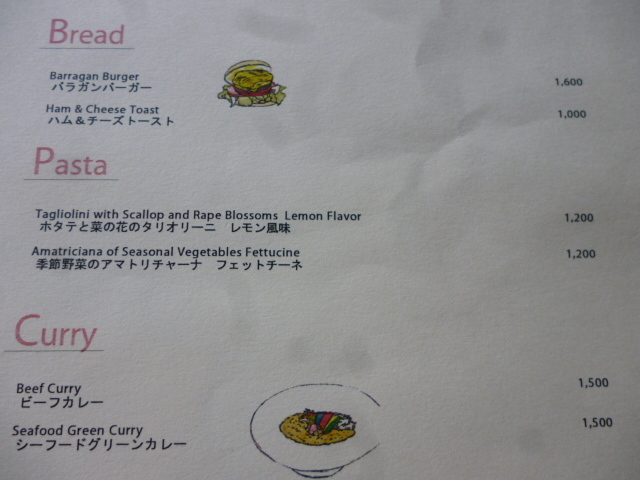 Bread
Barragan Burger 1,600
バラガンバーガー
Ham & Cheese Toast 1,000
ハム＆チーズトースト
Pasta
Tagliolini with Scallop and Rape Blossoms Lemon Flavor 1,200
ホタテと菜の花のタリオリーニ　レモン風味
Amatriciana of Seasonal Vegetables Fettucine 1,200
季節野菜のアマトリチャーナ　フェットチーネ
Curry
Beef Curry 1,500
ビーフカレー
Seafood Green Curry 1,500
シーフードグリーンカレー